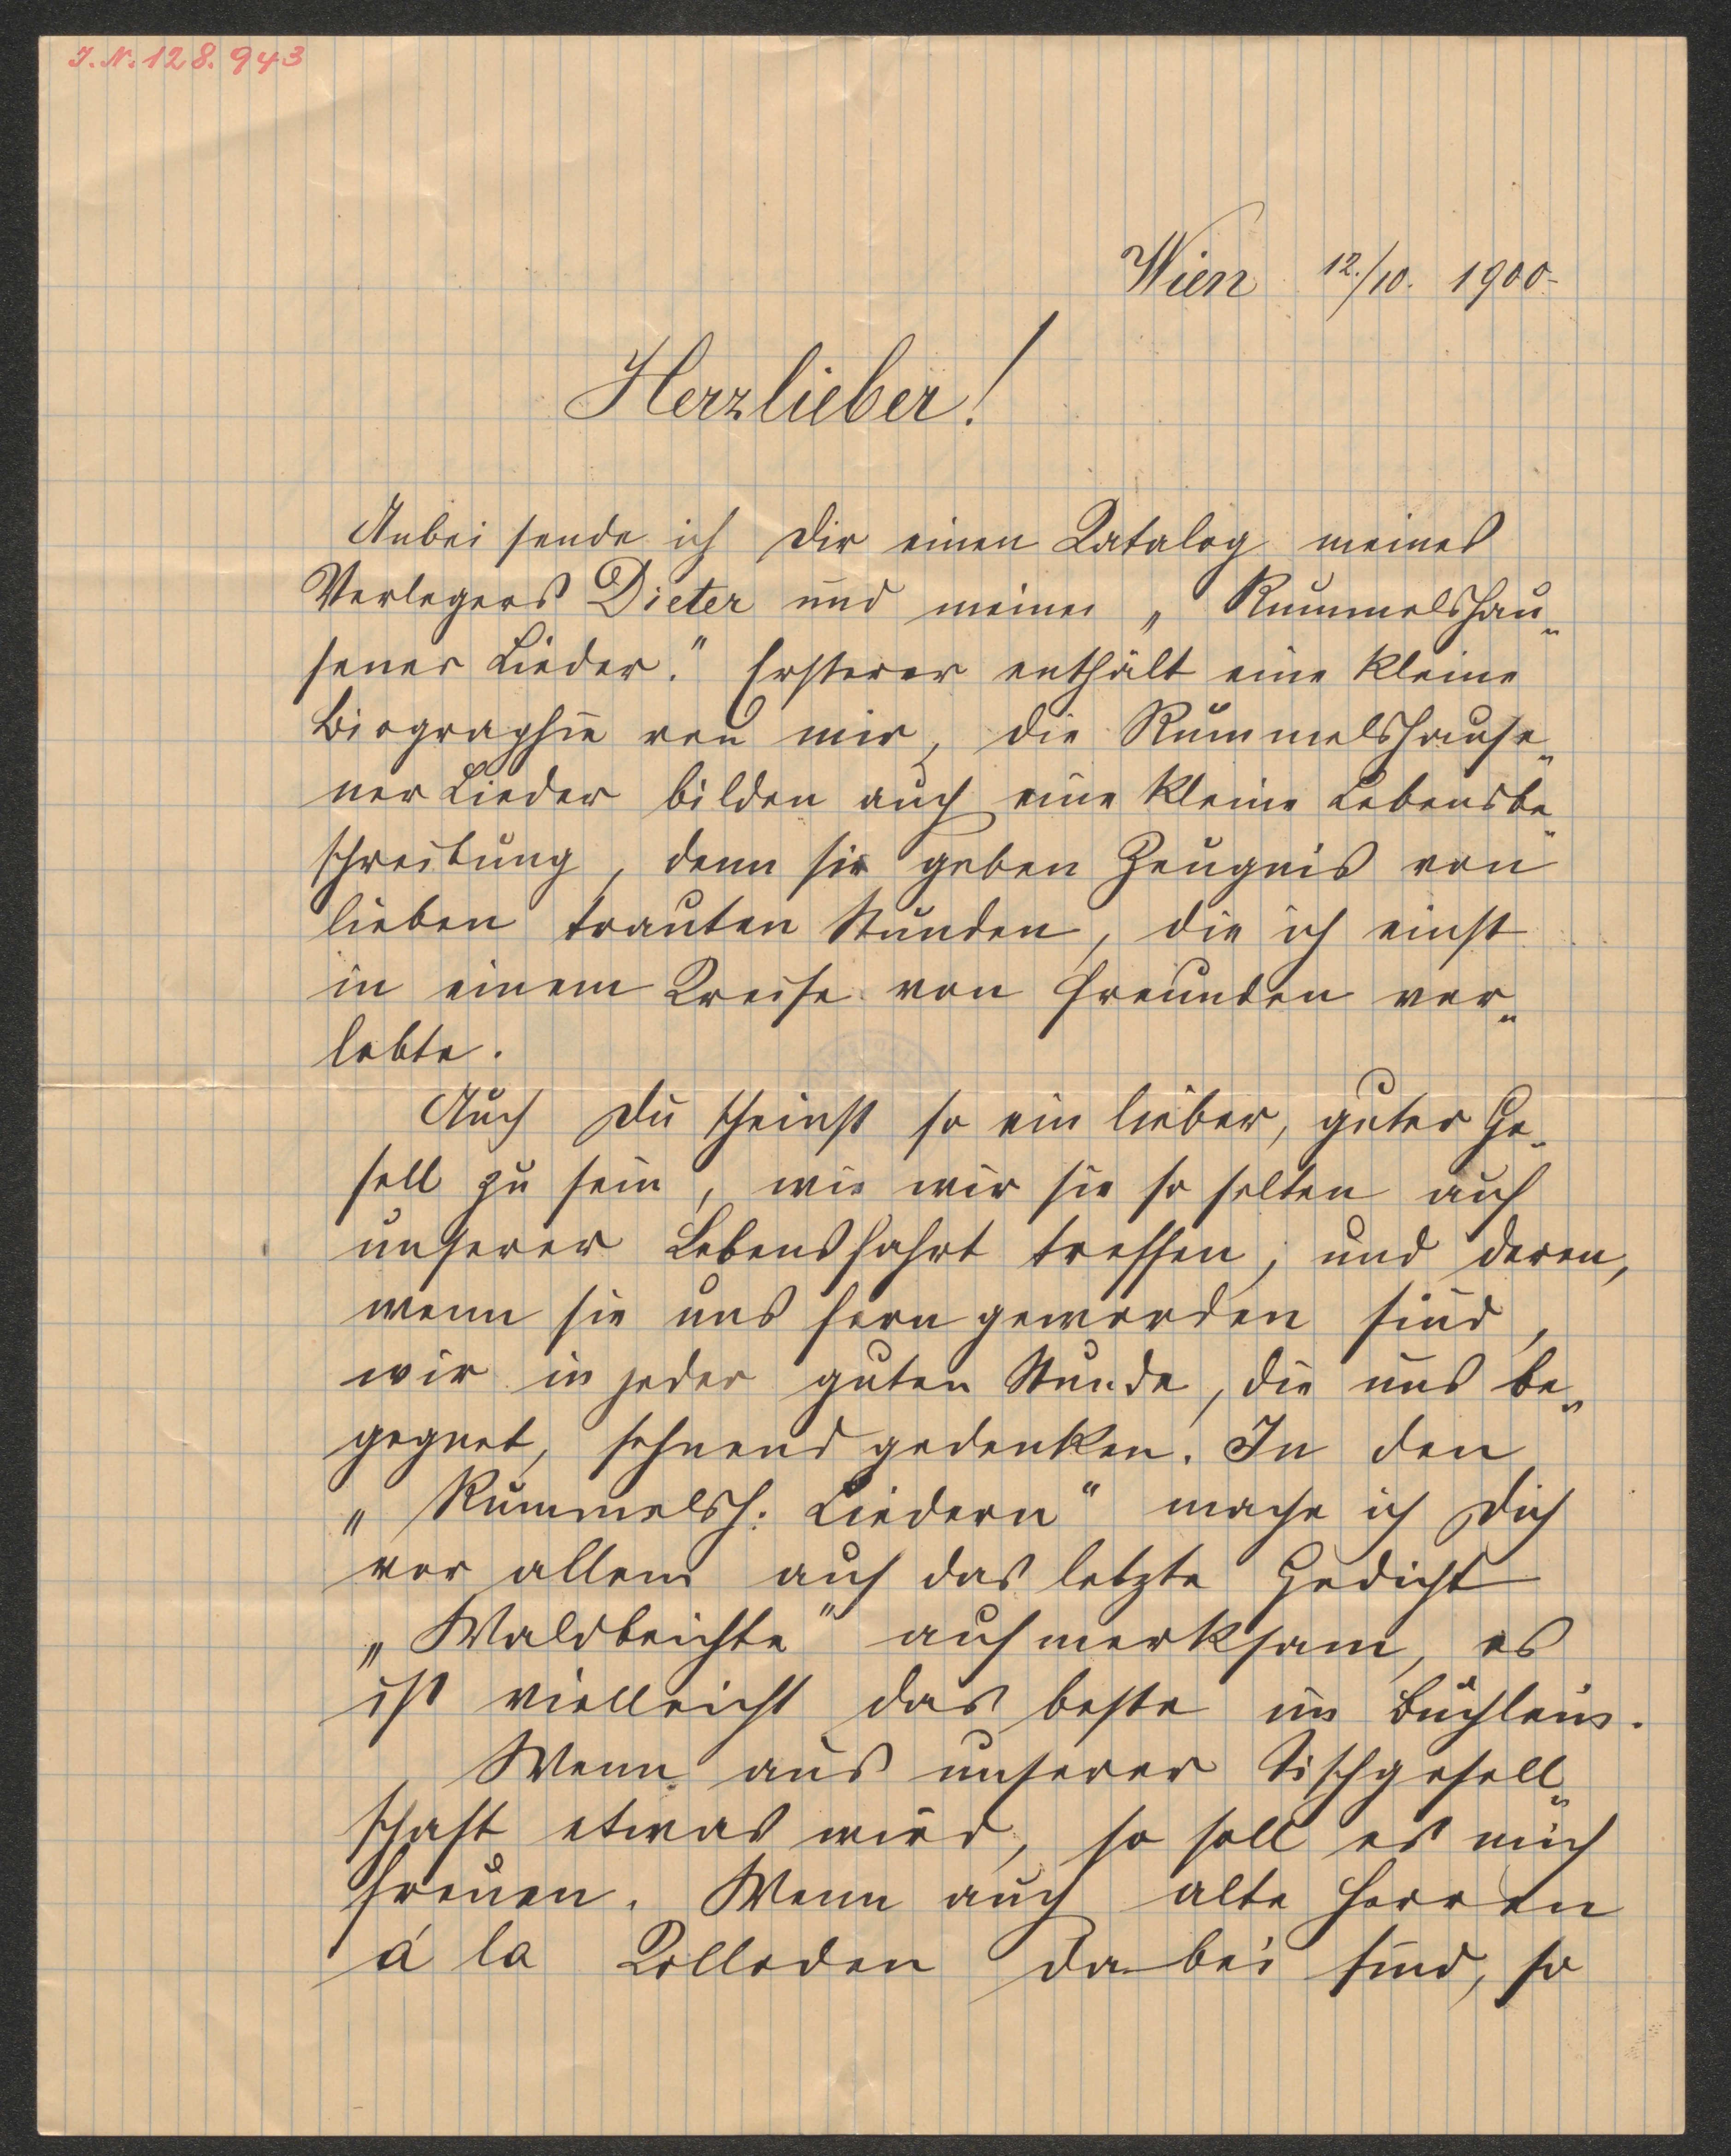 J. N. 128.943
Wien 12./10. 1900-
Herzlieber!
Anbei sende ich Dir einen Katalog meines
Verlegers Dieter und meine „Rummelshau„
sener Lieder." Ersterer enthält eine kleine
Biographie von mir, die Rummelshause„
ner Lieder bilden auch eine kleine Lebensbe„
schreibung, denn sie geben Zeugnis von
lieben trauten Stunden, die ich einst
in einem Kreise von Freunden ver„
lebte.
Auch Du scheinst so ein lieber, guter Ge„
sell zu sein, wie wir sie so selten auf
unserer Lebensfahrt treffen, und deren,
wenn sie uns fern geworden sind,
wir in jeder guten Stunde, die uns be„
gegnet, sehnend gedenken. In den
„Rummelsh: Liedern" mache ich Dich
vor allem auf das letzte Gedicht
„Waldbeichte" aufmerksam, es
ist vielleicht das beste im Büchlein.
Wenn aus unserer Tischgesell„
schaft etwas wird, so soll es mich
freuen. Wenn auch alte Herren
á la Kolloden dabei sind, so